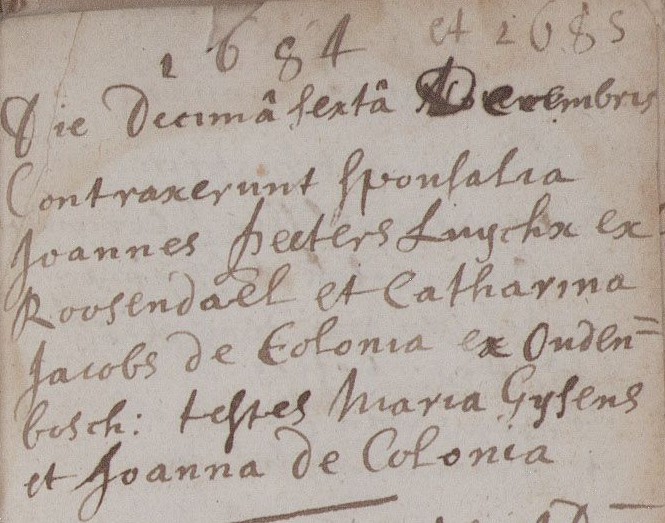 1684 et 1685
Die Decimâ sextâ Decembris
Contraxerunt sponsalia
Joannes peeters Luyckx ex
Roosendaël et Catharina
Jacobs de Colonia ex Ouden=
bosch: testes Maria Gysens
et Joanna de Colonia